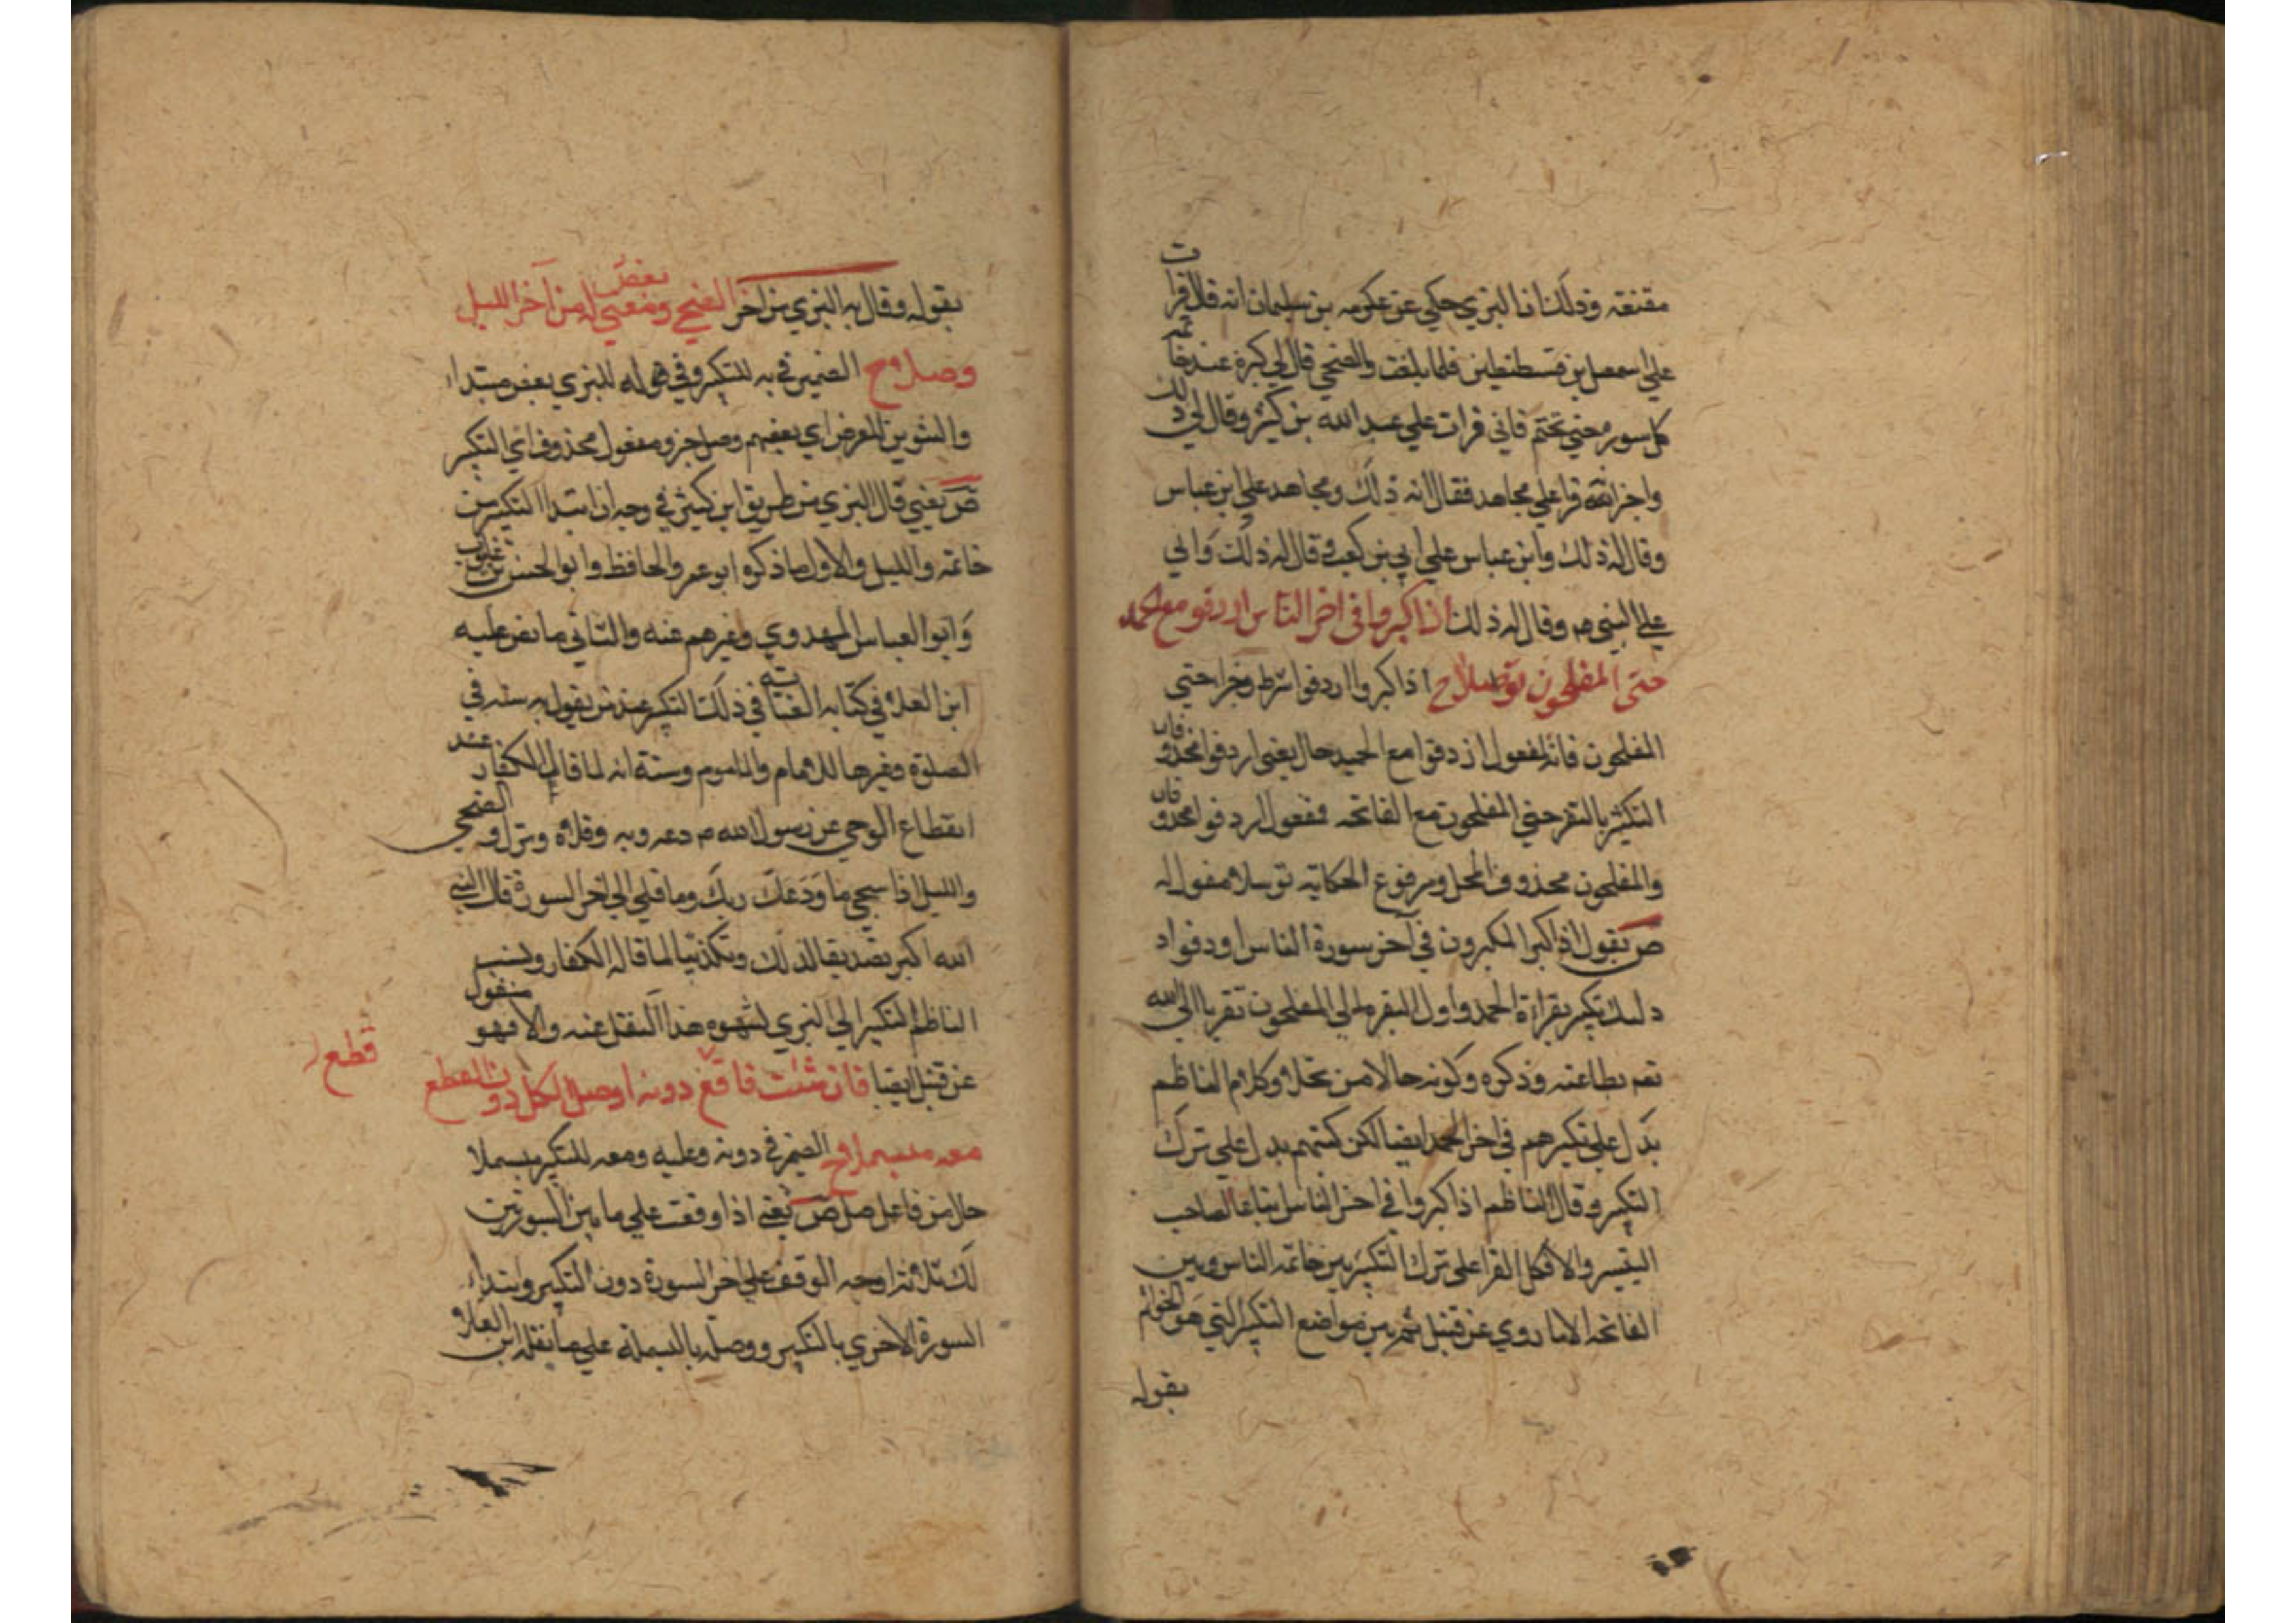 مقنعته وذلك ان البزي حكي عن عكرمه بن سليمان انه قال قرات
علي اسمعيل بن قسطنطين فلما بلغت والضحي قال لي كبره عند خاتمه
كل سورة حتي تختم فاني قرات علي عبد الله بن كثير وقال لي ذلك
واخبر انه قرا علي مجاهد فقال انه ذلك ومجاهد علي ابن عباس
وقال له ذلك وابن عباس علي ابي بن كعب وقال له ذلك وابي
علي النبي م وقال له ذلك اذا كبروا في اخر الناس اردفو مع الحمد
حتى المفلحون توسلا ح اذا كبروا اردفوا شرط وجزا حتي
المفلحون فانه مفعول اردفوا مع الحمد حال يعني اردفوا محذوفان
التكبير بالبقر حتي المفلحون مع الفاتحه فمفعول اردفوا محذوفان
والمفلحون محذوف المحل ومرفوع الحكايه توسلا مفعول له
ص يقول اذا كبر المكبرون في آخر سورة الناس اردفوا
ذلك تكبير بقراة الحمد واول البقره الي المفلحون تقربا الي الله
وذكره وكونه حالا من وكلام الناظم
يدل علي تكبيرهم في اخر الحمد ايضا لكن يدل علي ترك
التكبير وقال الناظم اذا كبروا في اخر الناس اتباعا لصاحب
التيسير والا فكل القرا علي ترك التكبير بين خاتمه الناس وبين
الفاتحه الا ما روي عن قنبل ثم بين مواضع التكبير التي هو الخواتم
بقوله
بقوله وقال به البزي من آخر الضحي وبعض له من آخر الليل
وصلا ح الضمير في به للتكبير وفي له للبزي بعض مبتداء
والتنوين للعوض اي بعضهم وصل خبره ومفعول محذوف اي التكبير
ص يعني قال البزي من طريق ابن كثير في وجه ان ابتدا التكبير من
خاتمه والليل والاول ما ذكره ابو عمرو الحافظ وابو الحسن بن غلبون
وابو العباس المهدوي وغيرهم عنه والثاني ما نص عليه
ابن العلا في كتابه الغايه في ذلك التكبير عند من يقول به سنه في
الصلوة وغيرها للامام والماموم وسنة انه لما قال الكفار عند
انقطاع الوحي عن رسول الله م ودعه ربه وقلاه ونزل والضحي
والليل اذا سجي ما ودعك ربك وما قلي الي اخر السورة قال النبي
الله اكبر تصديقا لذلك وتكذيبا لما قاله الكفار ونسب
الناظم التكبير الي البزي لشهره هذا النقل عنه والا فهو منقول
عن قنبل ايضا فان شئت فاقطع دونه او صل الكل دون القطع
قطع
معه مبسملا ح الضمير في دونه وعليه ومعه للتكبير مبسملا
حال من فاعل صل ص يعني اذا وقفت علي ما بين السورتين
لك ثلاثه اوجه الوقف علي اخر السورة دون التكبير وابتداء
السورة الاخري بالتكبير ووصله بالبسملة علي ما نقله ابن العلا